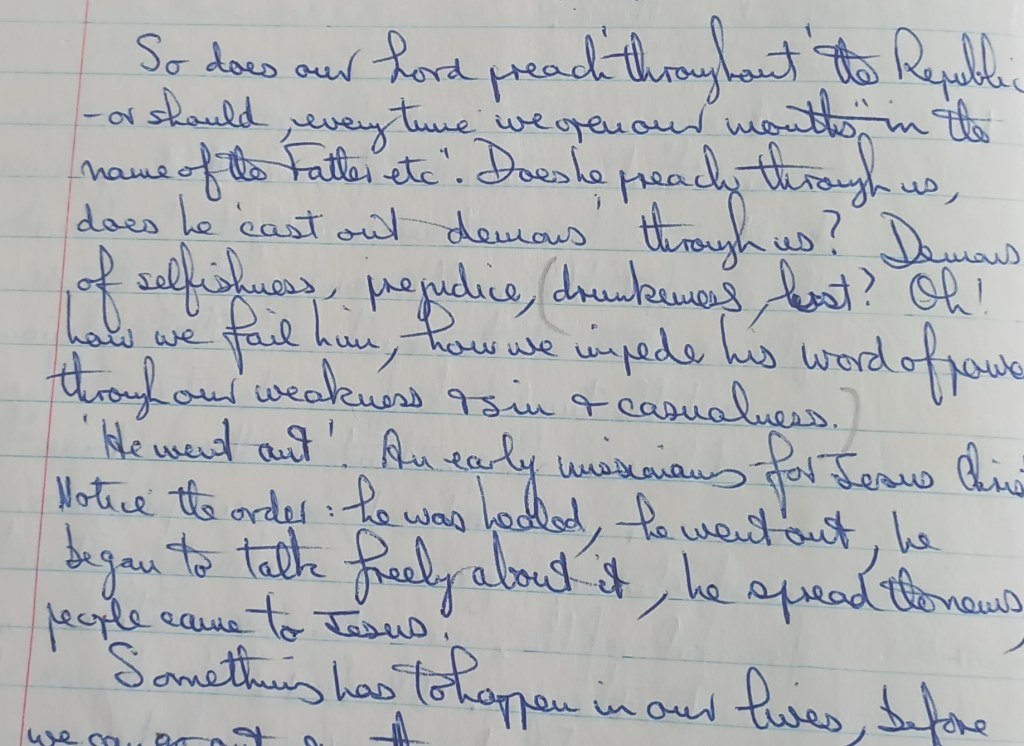 So does our Lord preach 'throughout' the Republic
- or should, every time we open our mouths "in the
name of the Father etc". Does he preach through us,
does he 'cast out demons' through us? Demons
of selfishness, prejudice, (drunkenness, lust? Oh!
how we fail him, how we impede his word of power
through our weakness & sin & casualness.)
'He went out'. An early missionary for Jesus Christ
Notice the order: he was healed, he went out, he
began to talk freely about it, he spread the news,
people came to Jesus.
Something has to happen in our lives, before
we can go out